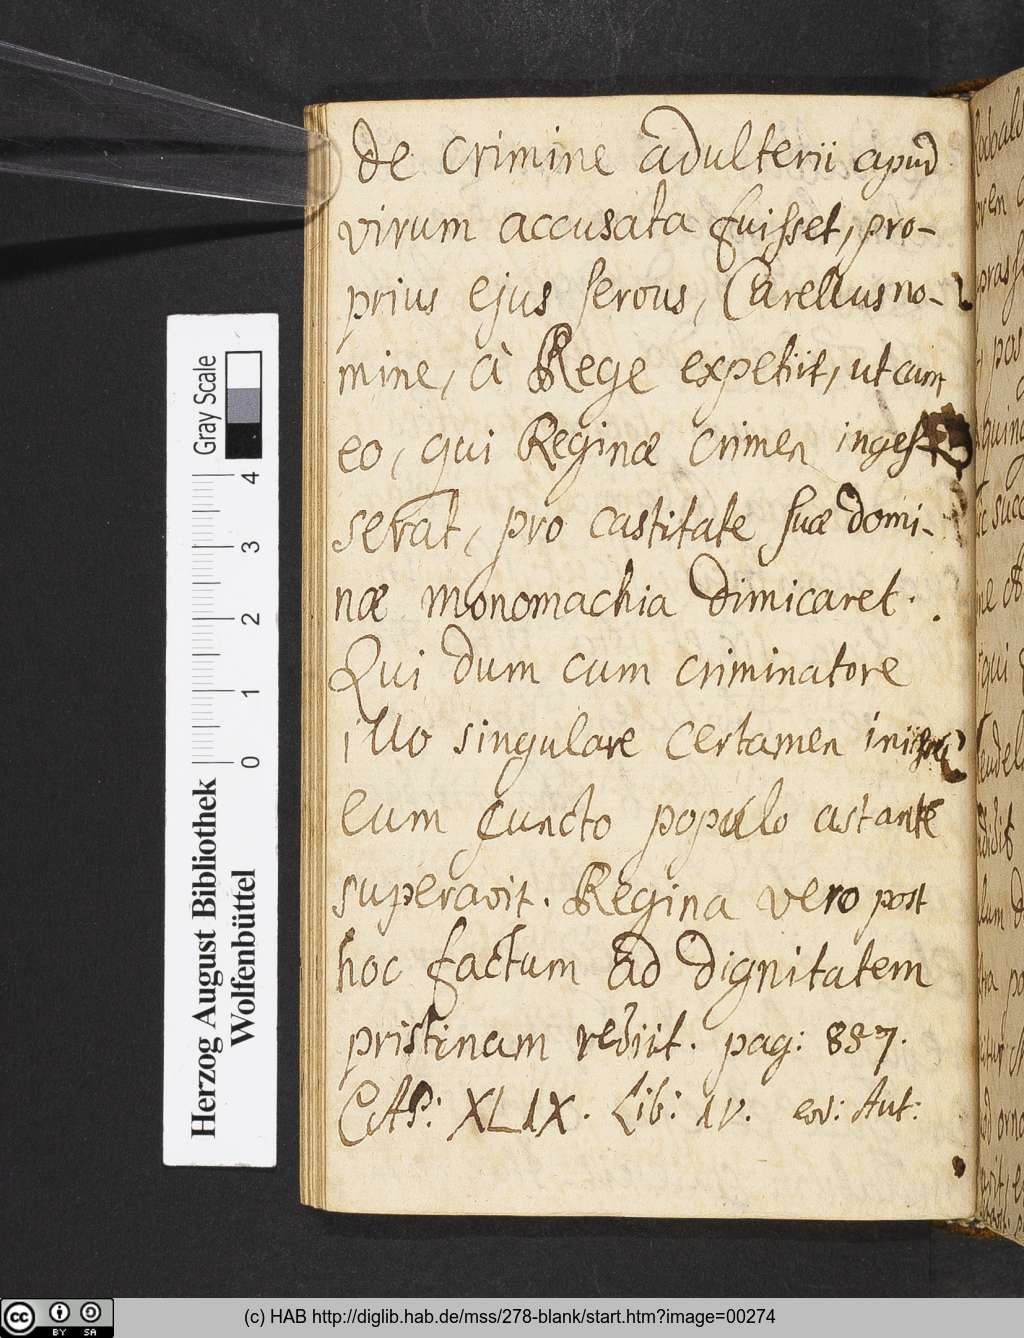 de crimine adulterii apud
virum accusata fuisset, pro-
prius ejus servus, Carellus no-
mine, à Rege expetiit, ut cum
eo, qui Reginæ crimen inges-
serat, pro castitate suæ domi-
næ monomachia dimicaret.
Qui dum cum criminatore
illo singulare certamen
eum cuncto populo astante
superavit. Regina vero post
hoc factum ad dignitatem
pristinam rediit. pag: 857.
CAP: XLIX. Lib: IV. eod: Aut:
Gray Scale
4
3
2
1
0
Herzog August Bibliothek
Wolfenbüttel
cc BY SA
(c) HAB http://diglib.hab.de/mss/278-blank/start.htm?image=00274